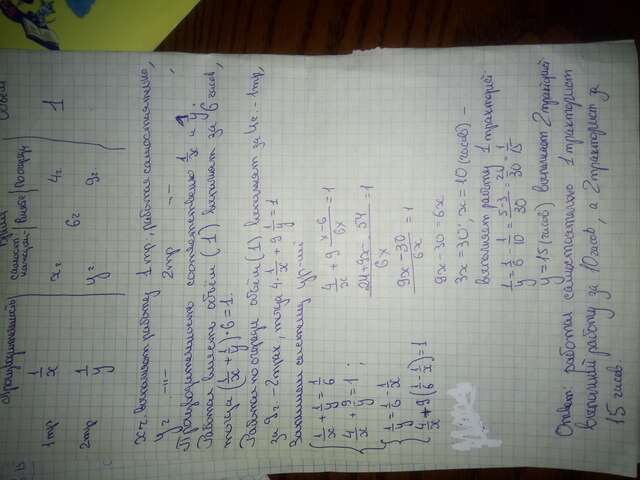 производительность | самост. | вместе | по очереди | объём
1 тр | 1/x | x ч | 6 ч | 4 ч | 1
2 тр | 1/y | y ч | 9 ч
x ч выполняет работу 1 тр, работая самостоятельно,
y ч —"— 2 тр —"—,
Производительность соответственно 1/x и 1/y.
Работая вместе объём (1) выполнят за 6 часов,
тогда (1/x + 1/y)·6 = 1.
Работая по очереди объём (1) выполнят за 4 ч. – 1 тр,
за 9 ч. – 2 трак, тогда 4·1/x + 9·1/y = 1
Запишем систему ур-ний
{ 1/x + 1/y = 1/6
4/x + 9/y = 1;
{ 1/y = 1/6 - 1/x
4/x + 9(1/6 - 1/x) = 1
4/x + 9 x-6/6x = 1
24+9x-54/6x = 1
9x-30/6x = 1
9x - 30 = 6x
3x = 30; x = 10 (часов) –
выполняет работу 1 тракторист
1/y = 1/6 - 1/10 = 5-3/30 = 2/30 = 1/15
y = 15 (часов) выполнит 2 тракторист
Ответ: работая самостоятельно 1 тракторист
выполнит работу за 10 часов, а 2 тракторист за
15 часов.